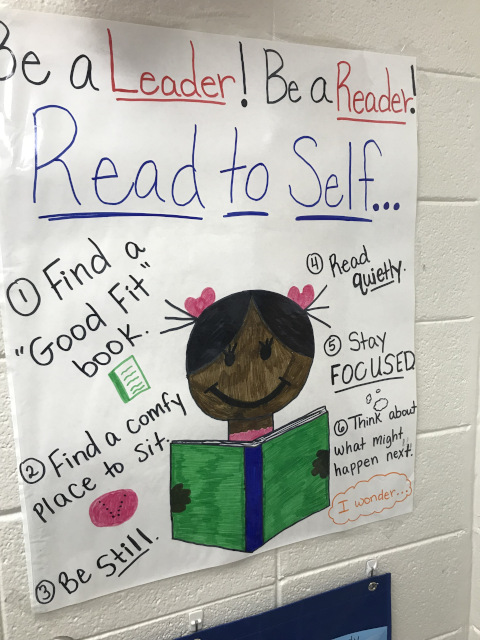 Be a Leader! Be a Reader!
Read to Self...
① Find a
"Good Fit"
book.
② Find a comfy
place to sit.
③ Be Still.
④ Read
quietly.
⑤ Stay
FOCUSED
⑥ Think about
what might
happen next.
I wonder...